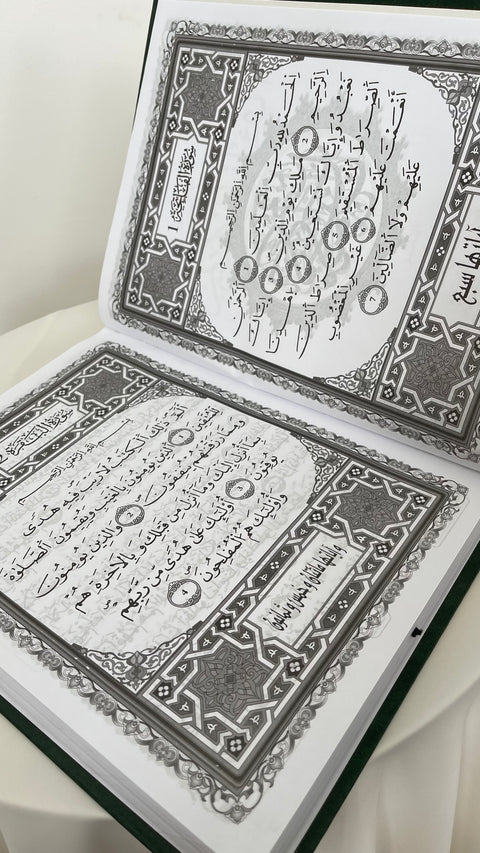 سُورَةُ الْفَاتِحَةِ
1
بِسْمِ اللَّهِ الرَّحْمَٰنِ الرَّحِيمِ
الْحَمْدُ لِلَّهِ رَبِّ الْعَالَمِينَ الرَّحْمَٰنِ
الرَّحِيمِ مَالِكِ يَوْمِ الدِّينِ إِيَّاكَ
نَعْبُدُ وَإِيَّاكَ نَسْتَعِينُ اهْدِنَا
الصِّرَاطَ الْمُسْتَقِيمَ صِرَاطَ الَّذِينَ
أَنْعَمْتَ عَلَيْهِمْ غَيْرِ الْمَغْضُوبِ
عَلَيْهِمْ وَلَا الضَّالِّينَ 7
آياتها سبع
سُورَةُ الْبَقَرَةِ
بِسْمِ اللَّهِ الرَّحْمَٰنِ الرَّحِيمِ
الم ذَٰلِكَ الْكِتَابُ لَا رَيْبَ فِيهِ هُدًى
لِلْمُتَّقِينَ الَّذِينَ يُؤْمِنُونَ بِالْغَيْبِ وَيُقِيمُونَ الصَّلَاةَ
وَمِمَّا رَزَقْنَاهُمْ يُنْفِقُونَ وَالَّذِينَ يُؤْمِنُونَ
بِمَا أُنْزِلَ إِلَيْكَ وَمَا أُنْزِلَ مِنْ قَبْلِكَ وَبِالْآخِرَةِ هُمْ
يُوقِنُونَ أُولَٰئِكَ عَلَىٰ هُدًى مِنْ رَبِّهِمْ
وَأُولَٰئِكَ هُمُ الْمُفْلِحُونَ